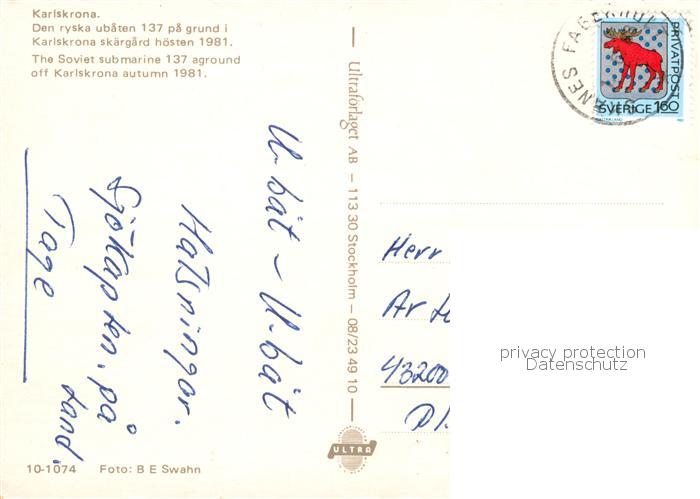 Karlskrona.
Den ryska ubåten 137 på grund i
Karlskrona skärgård hösten 1981.
The Soviet submarine 137 aground
off Karlskrona autumn 1981.
U-båt - U-båt
Hälsningar.
Sjökapten, på
land.
Tage
Ultraförlaget AB — 113 30 Stockholm — 08/23 49 10
ULTRA
10-1074 Foto: B E Swahn
PRIVATPOST
SVERIGE 160
Herr
43200
privacy protection
Datenschutz